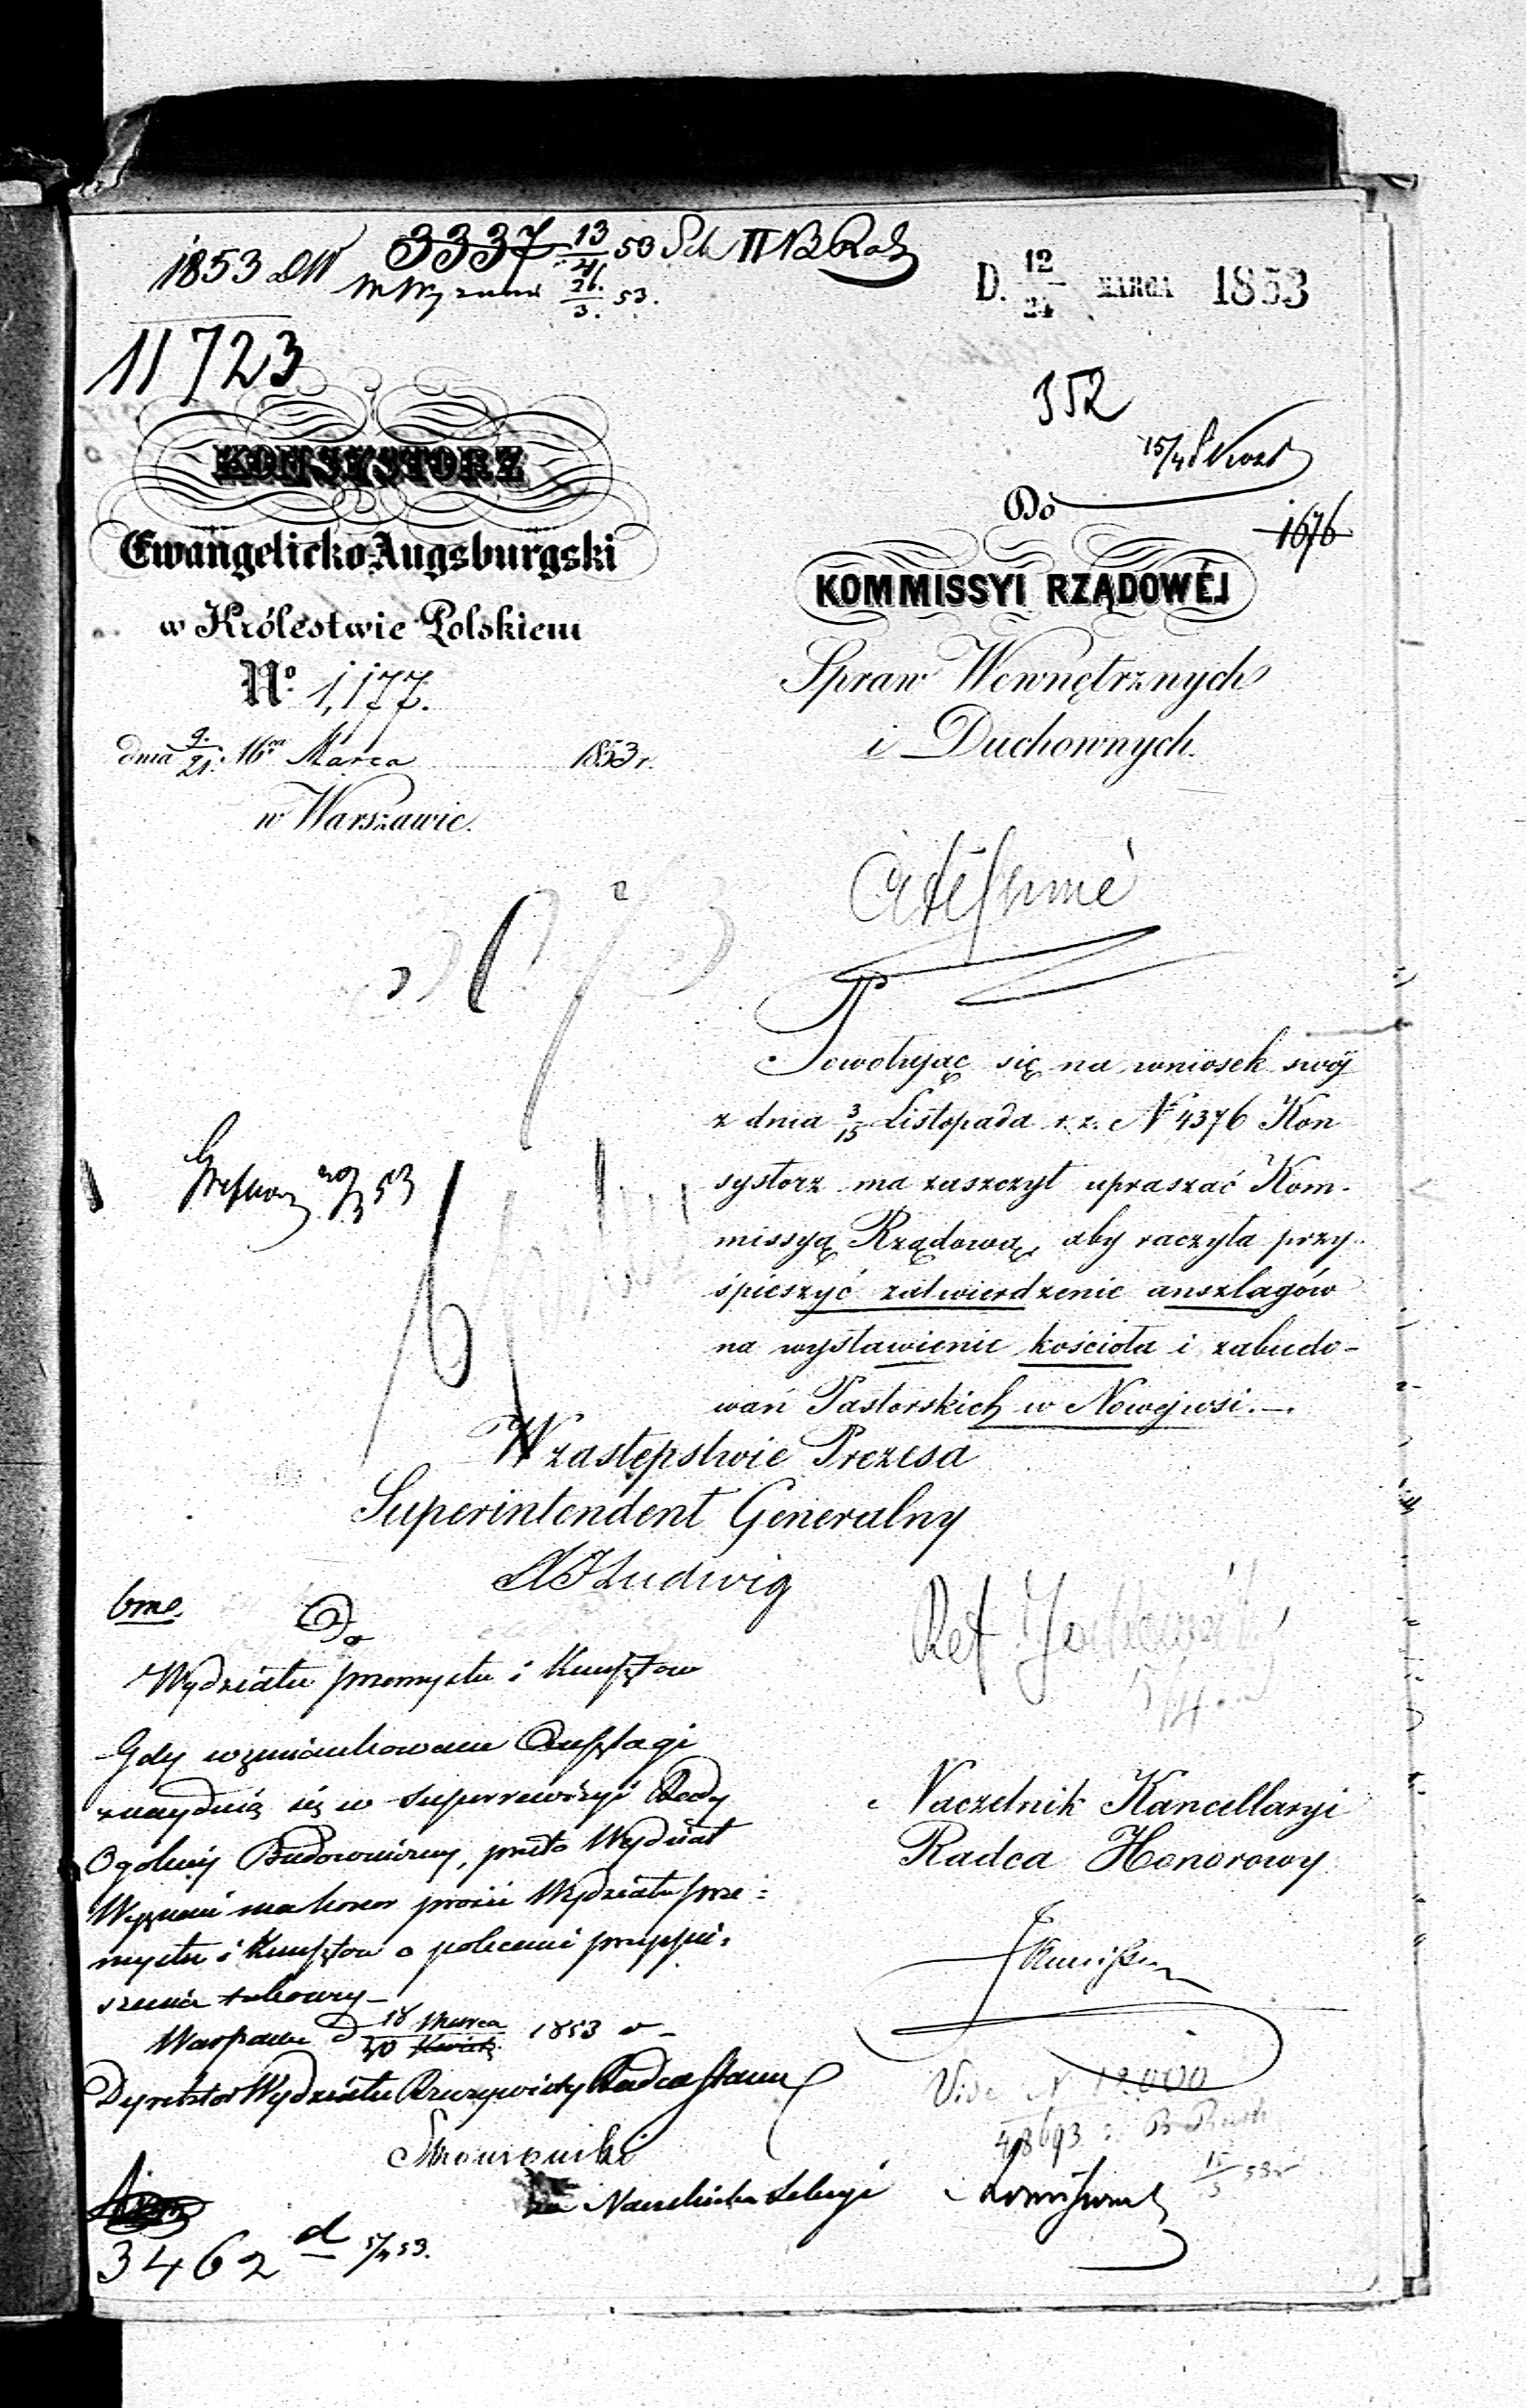 1853 DW 3337 13/4 53 Sek II B
26/3. 53.
D. 12/24 MARCA 1853
11723
352
KONSYSTORZ
Ewangelicko-Augsburgski
w Królestwie Polskiem
No. 1,177.
dnia 9./21. Marca 1853 r.
w Warszawie.
15/4
Do
1676
KOMMISSYI RZĄDOWÉJ
Spraw Wewnętrznych
i Duchownych.
Powołując się na wniosek swój
z dnia 3/15 Listopada r. z. No 4376 Kon
systorz ma zaszczyt upraszać Kom-
missyą Rządową, aby raczyła przy-
śpieszyć zatwierdzenie anszlagów
na wystawienie kościoła i zabudo-
wań Pastorskich w Nowejwsi.—.
W zastępstwie Prezesa
Superintendent Generalny
Ludwig
Do
Wydziału przemysłu i Kunsztow
Gdy wzmiankowane Anszlagi
znayduią się w superrewizyi Rady
Ogolnéy Budowniczey, przeto Wydział
Wyznań ma honor prosić Wydziału prze-
mysłu i Kunsztow o polecenie przyspie-
szenia takowey—
Warszawa d 18 Marca/30 1853 r—
Dyrektor Wydziału Rzeczywisty Radca Stanu
za Naczelnika Sekcyi
Ref
5/4
Naczelnik Kancellaryi
Radca Honorowy
Vide N 12,000
48693
15/3 53 r
3462 d 5/4 53.